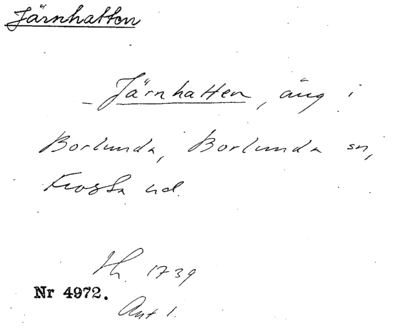 Järnhatten
– Järnhatten, äng i
Borlunda, Borlunda sn,
Frosta hd.
Hh. 1739
Nr 4972.
Ant 1.